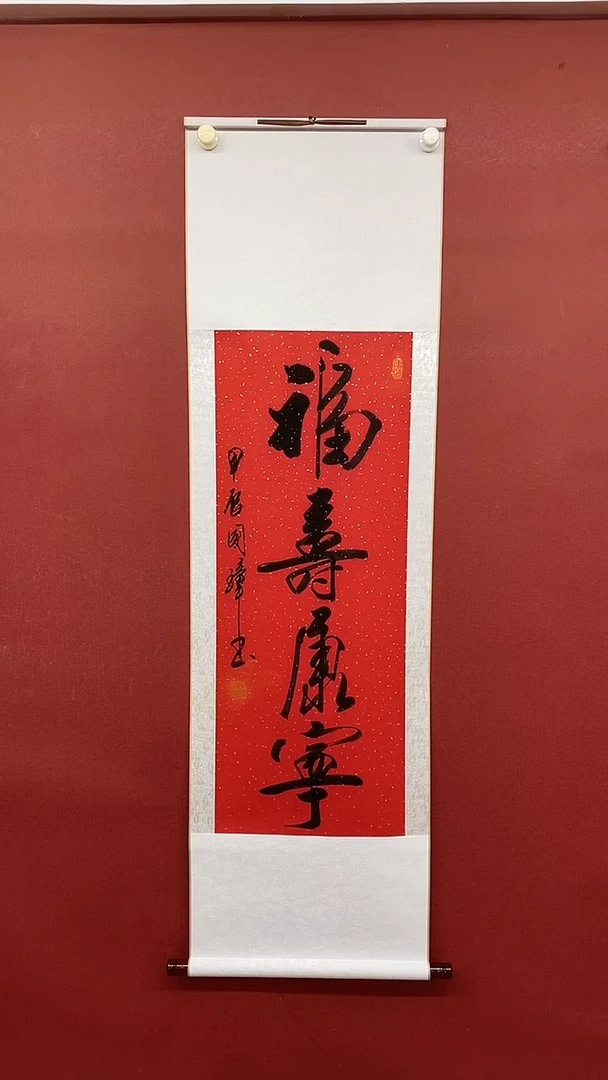 福壽康寧
甲辰國璋書